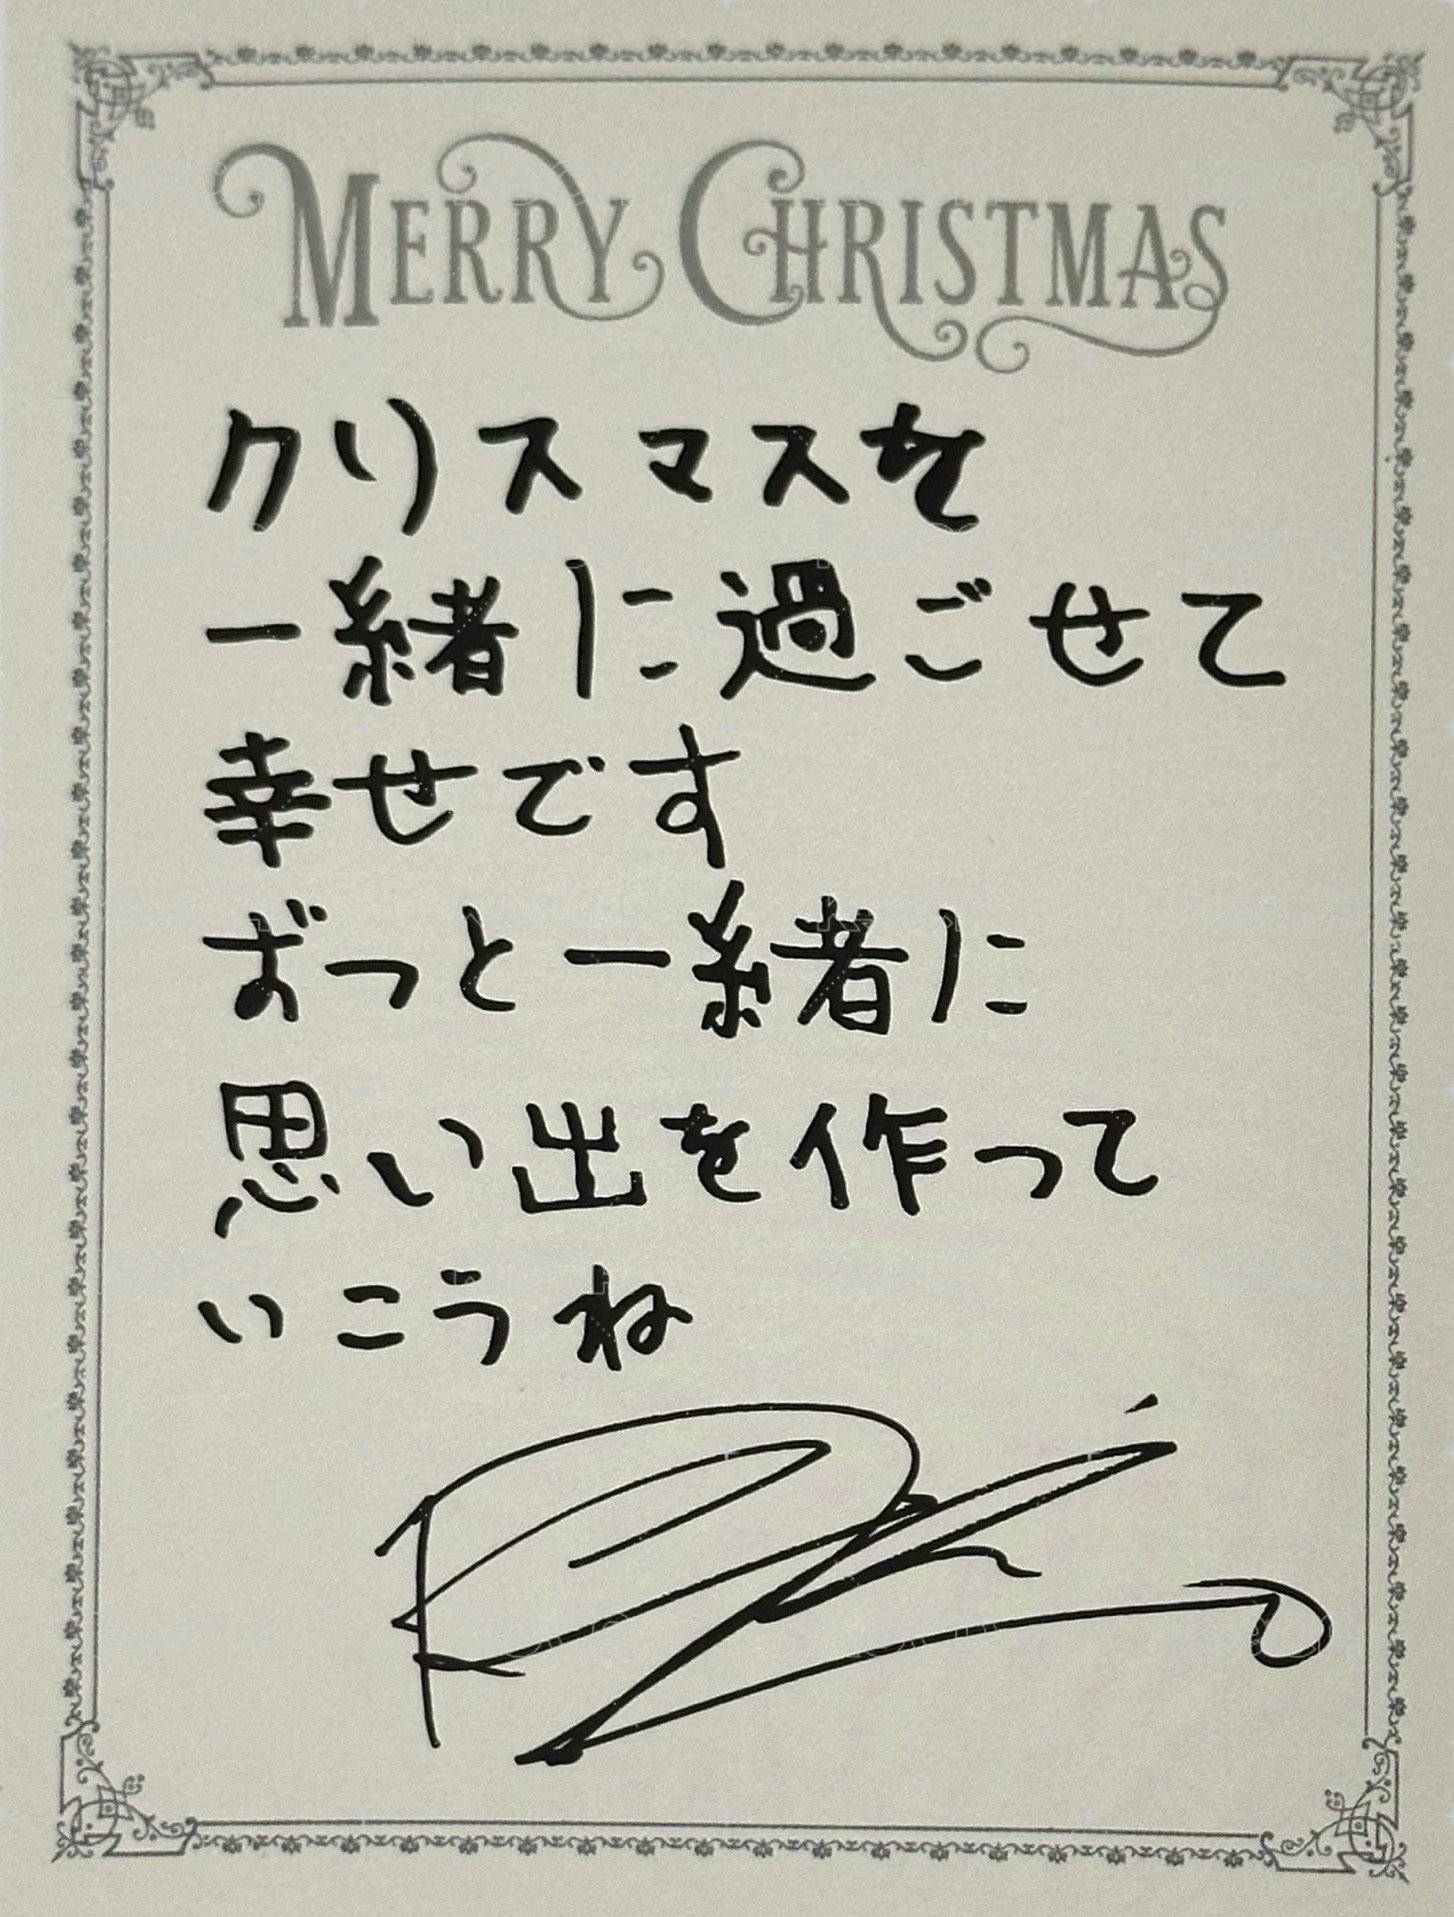 MERRY CHRISTMAS
クリスマスを
一緒に過ごせて
幸せです
ずっと一緒に
思い出を作って
いこうね